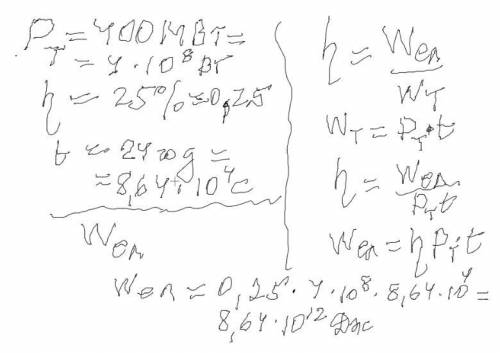 P_T = 400 МВт =
= 4 · 10^8 Вт
η = 25% = 0,25
t = 24 год =
= 8,64 · 10^4 с
W_ел
η = W_ел / W_T
W_T = P_T · t
η = W_ел / P_T t
W_ел = η P_T t
W_ел = 0,25 · 4 · 10^8 · 8,64 · 10^4 =
8,64 · 10^12 Дж